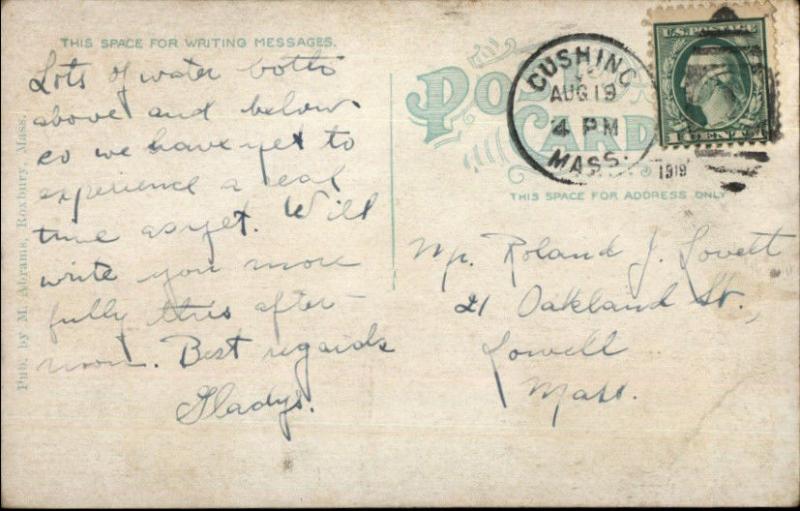 THIS SPACE FOR WRITING MESSAGES.
Lots of water both
above and below.
so we have yet to
experience a real
time as yet. Will
write you more
fully this after-
noon. Best regards
Gladys.
Pub. by M. Abrams, Roxbury, Mass.
POST CARD
THIS SPACE FOR ADDRESS ONLY
CUSHING
AUG 19
4 PM
MASS.
1919
U.S. POSTAGE
1 CENT 1
Mr. Roland J. Lovett
21 Oakland St.,
Lowell
Mass.